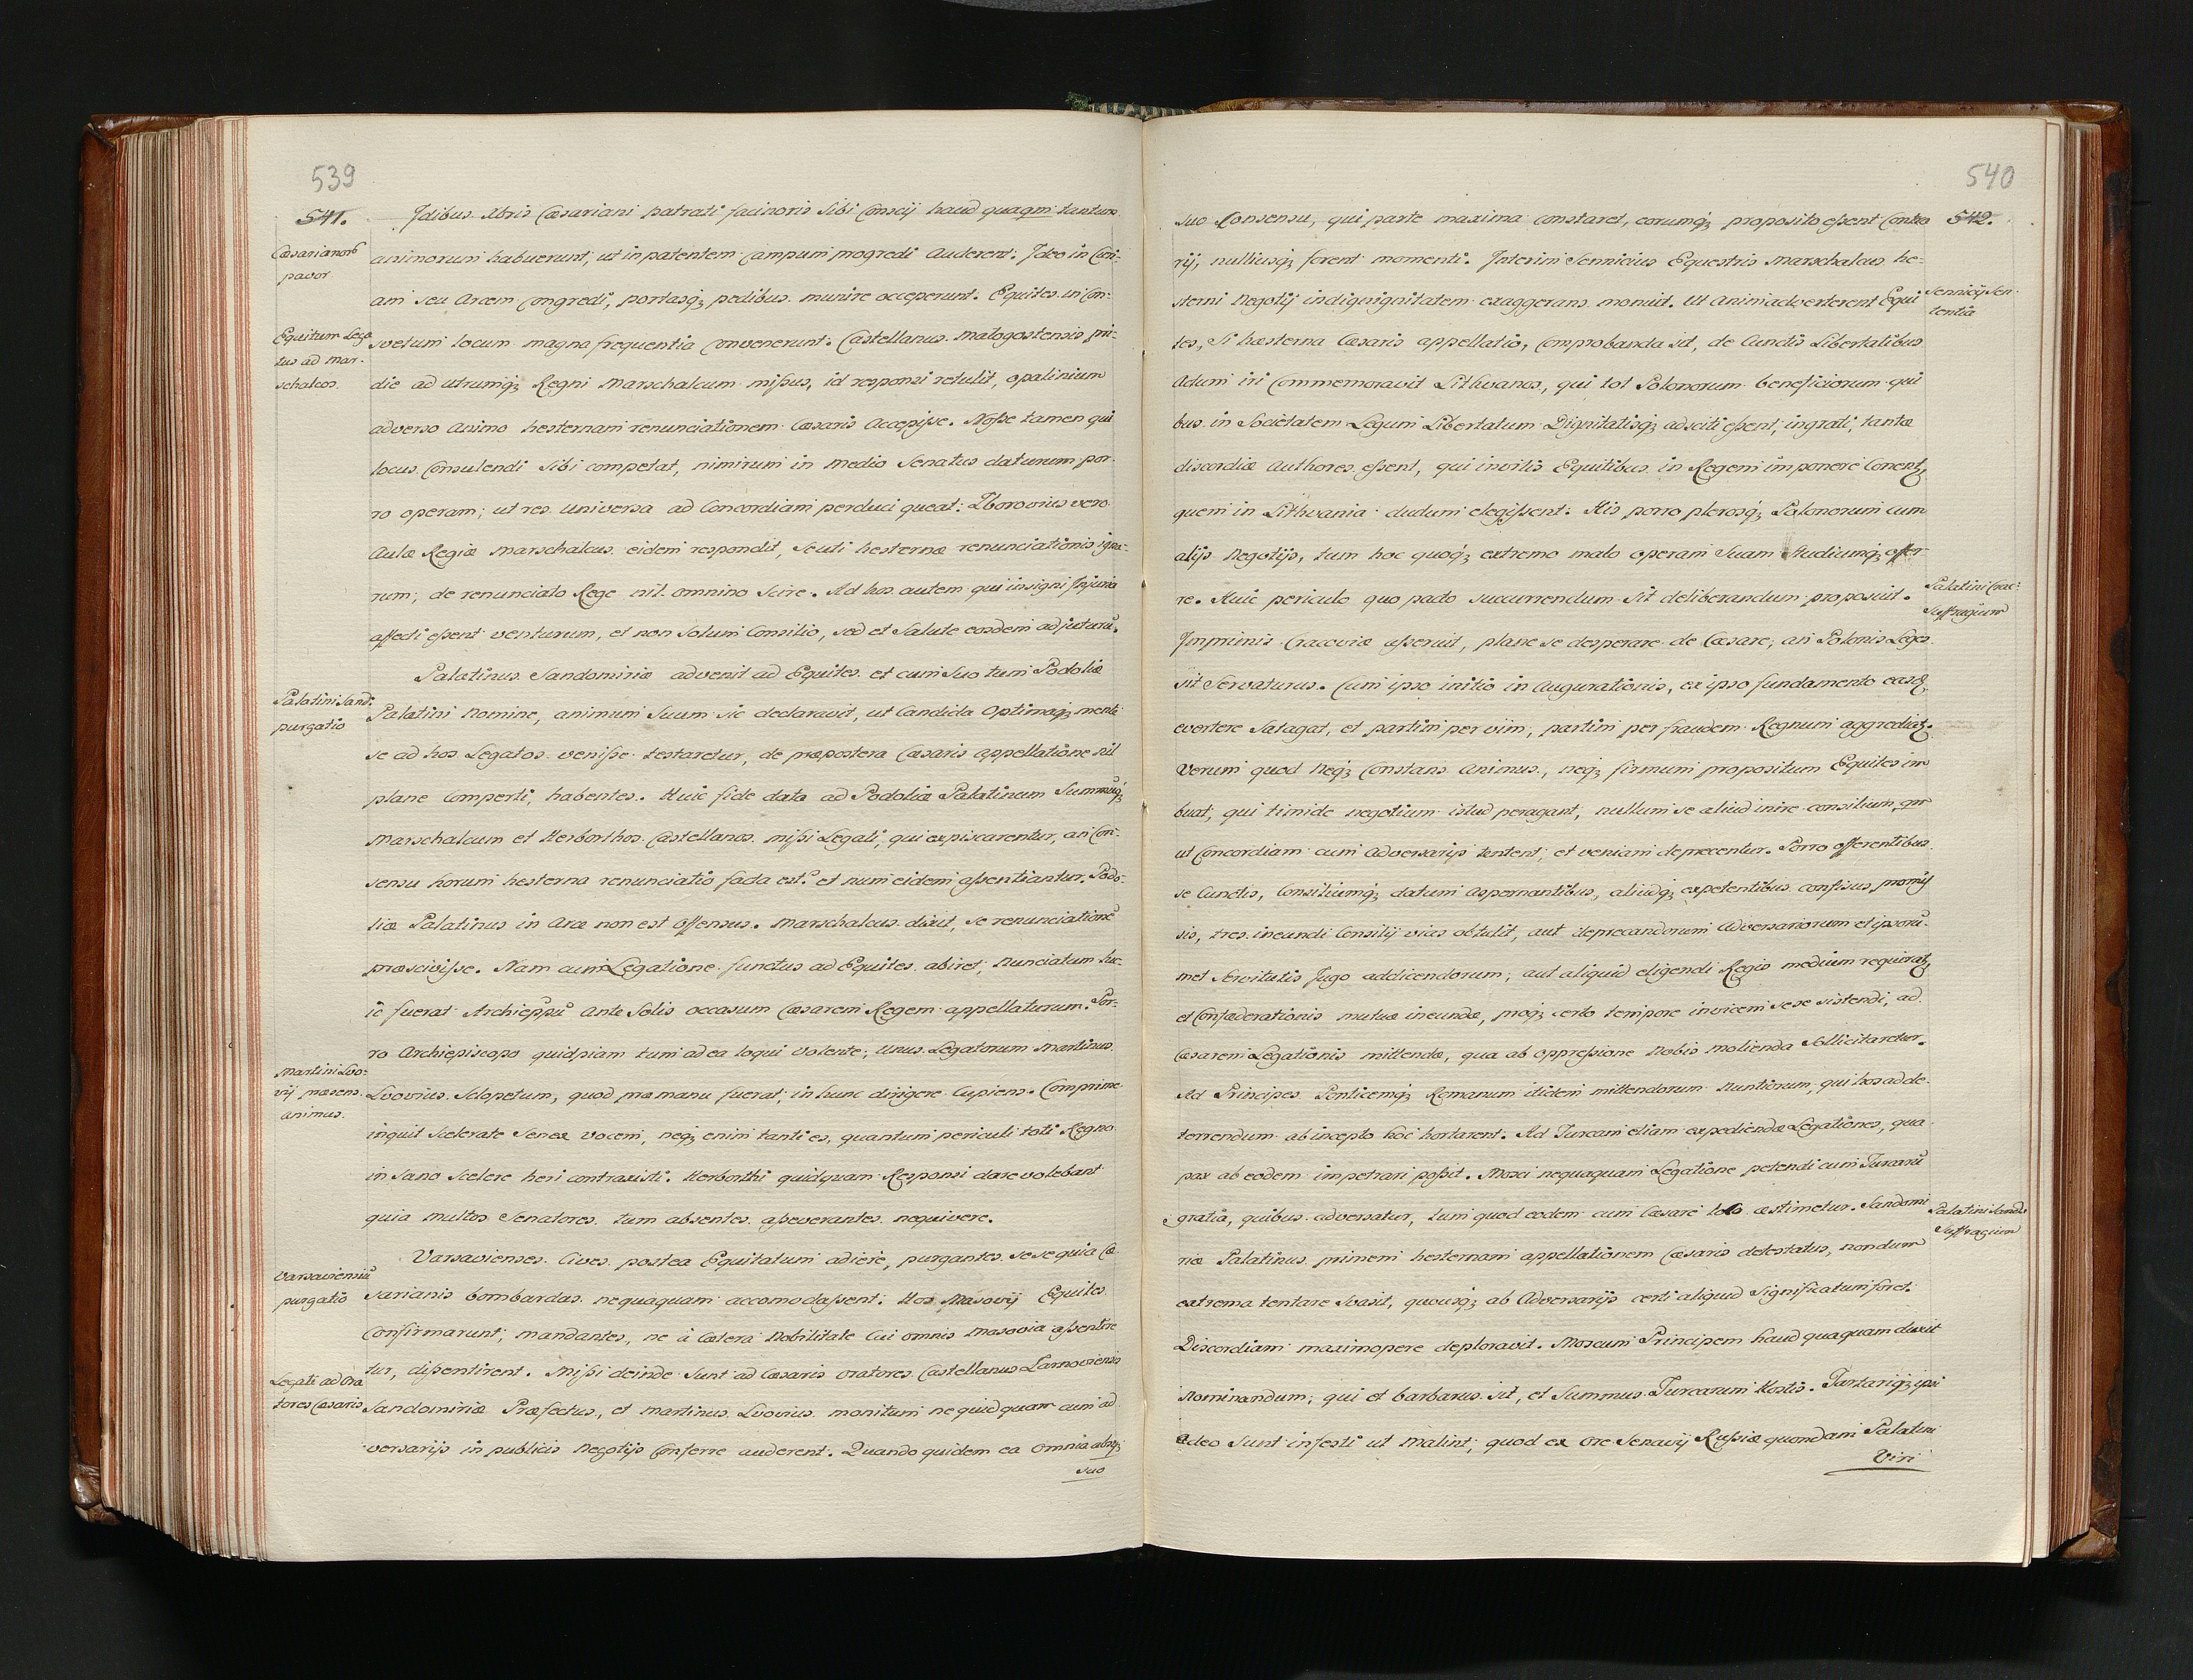 539
541.
Jdibus Xbris Cæsariani patrati facinoris sibi Conscij haud quaqm̃ tantum
Cæsarianorũ
pavor
animorum habuerunt, ut in patentem campum progredi auderent: Jdeo in Cũri-
am seu Arcem Congredi, portasq; pedibus munire occeperunt. Equites in Con-
Equitum Lega
tus ad Mar-
schalcos
svetum locum magna frequentia convenerunt. Castellanus Malogostensis pri-
die ad utrumq; Regni Marschalcum missus, id responsi retulit, opalinium
adverso animo hesternam renunciationem Cæsaris Accepisse. Nosse tamen qui
locus Consulendi sibi competat, nimirum in medio Senatus daturum por-
ro operam; ut res universa ad Concordiam perduci queat: Zborovius vero
Aulæ Regiæ Marschalcus eidem respondit, seuti hesternæ renunciationis igna-
rum, de renunciato Rege nil omnino Scire. Ad hos autem qui insigni Injuria
affecti essent venturum, et non solum Consilio, sed et Salute eosdem adjuturũ.
Palatinus Sandomiriæ advenit ad Equites et cum Suo tum Podoliæ
Palatini Sand:
purgatio
Palatini Nomine, animum Suum sic declaravit, ut Candida Optimaq; mente
se ad hos Legatos venisse testaretur, de præpostera Cæsaris appellatione nil
plane Comperti, habentes. Huic fide data ad Podoliæ Palatinum Summũq;
Marschalcum et Herborthos Castellanos missi Legati, qui expiscarentur, an Con-
sensu horum hesterna renunciatio facta est? et num eidem assentiantur. Podo-
liæ Palatinus in Arce non est Offensus. Marschalcus dixit, se renunciationẽ
præscivisse. Nam cum Legatione functus ad Equites abiret, Nunciatum huc
ic fuerat Archiepp̃u Ante Solis occasum Cæsarem Regem appellaturum. Por-
ro Archiepiscopo quidpiam tum ad ea loqui volente, Unus Legatorum Martinus
Martini Lvo-
vij præsens
animus.
Lvovius Sclopetum, quod præ manu fuerat, in hunc dirigere Cupiens. Comprime
inquit Scelerate Senex vocem, neq; enim tanti es, quantum periculi toti Regno
in sano Scelere heri contraxisti. Herborthi quidquam Responsi dare volebant
quia multos Senatores tum absentes asseverantes nequivere.
Varsavienses Cives postea Equitatum adiere, purgantes sese quia Cæ
Varsaviensiũ
purgatio
sarianis bombardas nequaquam accomodassent: Hos Masovij Equites
Confirmarunt, mandantes, ne à Cætera Nobilitate Cui omnis Masovia assentire
tur, dissentirent. Missi deinde Sunt ad Cæsaris Oratores Castellanus Tarnoviensis
Legati ad Ora
tores Cæsaris
Sandomiriæ Præfectus, et Martinus Lvovius monitum ne quidquam cum ad-
versarijs in publicis Negotijs Conferre auderent. Quandoquidem ea Omnia absq;
suo
540
542.
suo Consensu, qui parte maxima constaret, eorumq; proposito essent Contra
rij, nulliusq; forent momenti. Interim Sennicius Equestris Marschalcus he-
sterni Negotij indignignitatem exaggerans monuit. Ut animadverterent Equi
Sennicij Sen-
tentia
tes, Si hæsterna Cæsaris appellatio, Comprobanda sit, de Cunctis Libertatibus
Actum iri Commemoravit Lithvanos, qui tot Polonorum beneficiorum qui
bus in Societatem Legum Libertatum Dignitatisq; adsciti essent, ingrati, tantæ
discordiæ Authores essent, qui invitis Equitibus in Regem imponere Conent,
quem in Lithvania dudum elegissent. His porro plerosq; Polonorum cum
alijs Negotijs, tum hoc quoq; extremo malo operam Suam Studiumq; offer-
re. Huic periculo quo pacto succurrendum Sit deliberandum proposuit.
Palatini Crac:
Suffragium
Imprimis Cracoviæ asseruit, plane se desperare de Cæsare, an Polonis Leges
sit Servaturus. Cum ipso initio in Augurationis, ex ipso fundamento easq;
evertere Satagat, et partim per vim, partim per fraudem Regnum aggrediat.
Verum quod Neq; Constans animus, neq; firmum propositum Equites im
buat, qui timide negotium istud peragant, nullum se aliud inire consilium, qm̃
ut Concordiam cum Adversarijs tentent, et veniam deprecentur. Porro offerentibus
se Cunctis, Consiliumq; datum aspernantibus, aliudq; expetentibus confisus promis
sis, tres ineundi Consilij vias obtulit, aut deprecandorum Adversariorum et ipsorũ-
met Servitutis Jugo addicendorum; aut aliquid eligendi Regis medium requirat,
et Confæderationis mutuæ ineundæ, proq; certo tempore invicem sese sistendi, ad
Cæsarem Legationis mittendæ, qua ab oppressione Nobis molienda sollicitaretur.
Ad Principes Ponticemq; Romanum itidem mittendorum Nuntiorum, qui hos ad de-
terrendum ab incepto hoc hortarent. Ad Turcam etiam expediendæ Legationes, qua
pax ab eodem impetrari possit. Mosci nequaquam Legatione petendi cum Turcarũ
gratia, quibus adversatur, tum quod eodem cum Cæsare loco æstimetur. Sandomi
Palatini Sando
Suffragium
riæ Palatinus primem hesternam appellationem Cæsaris detestatus, nondum
extrema tentare Svasit, quousq; ab Adversarijs certi aliquid significatum foret.
Discordiam maximopere deploravit. Moscum Principem haud quaquam duxit
Nominandum, qui et barbarus sit, et Summus Turcarum Hostis. Tartariq; ipsi
adeo Sunt infesti ut Malint, quod ex ore Senavij Russiæ quondam Palatini
Viri